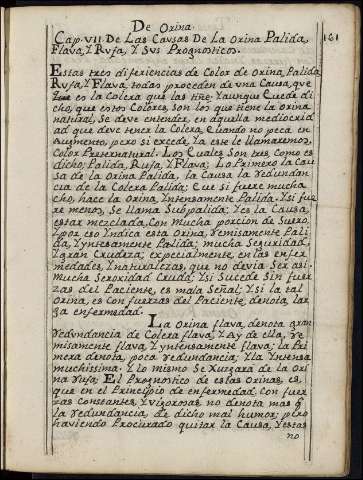 De Orina.
161
Cap. VII. De Las Causas De La Orina Palida,
Flava, Y Rufa, Y Sus Prognosticos.
Estas tres diferiencias de Color de Orina, Palida
Rufa, Y Flava, todas proceden de vna Causa, que
es la Colera que las tiñe. Yaunque Quede di
cho, que estos Colores, son los que tiene la Orina
natural, Se deve entender, en aquella mediocrid
ad que deve tener la Colera, Cuando no peca en
Augmento, pero si excede, Ya ese le llamaremos,
Color Preternatural. Los Cuales Son tres como es
dicho; Palida, Rufa, Y Flava. Lo Primero la Cau
sa de la Orina Palida, la Causa la Redundan
cia de la Colera Palida; Que si fuere mucha
cho, hace la Orina Yntensamente Palida. Ysi fue
re menos, Se llama Subpalida; Yes la Causa,
estar mezclada, Con Mucha porcion de Suero,
Ypor eso Yndica esta Orina, Remisamente Pali
da, Yyntesamente Palida; mucha Seguridad,
Ygran Crudeza; expecialmente, en las enfer
medades, Ynaturalezas, que no devia Ser asi.
Mucha Serosidad Cruda; Ysi Sucede Sin fuer
zas del Paciente, es mala Señal; Y si la tal
Orina, es Con fuerzas del Paciente, denota, lar
ga enfermedad.
La Orina flava, denota gran
redvndancia de Colera flava, Y Ay de ella, re
misamente flava, Y yntensamente flava; la Pri
mera denota, poca redundancia; Yla Yntensa
muchissima. Y lo mismo Se Xuzgará de la Ori
na rufa; El Prognostico de estas Orinas, es
que en el Principio de enfermedad, Con fuer
zas Constantes, Y vigorosas no denota mas q
la redundancia, de dicho mal humor; pero
haviendo Procurado quitar la Causa, Yestas
no